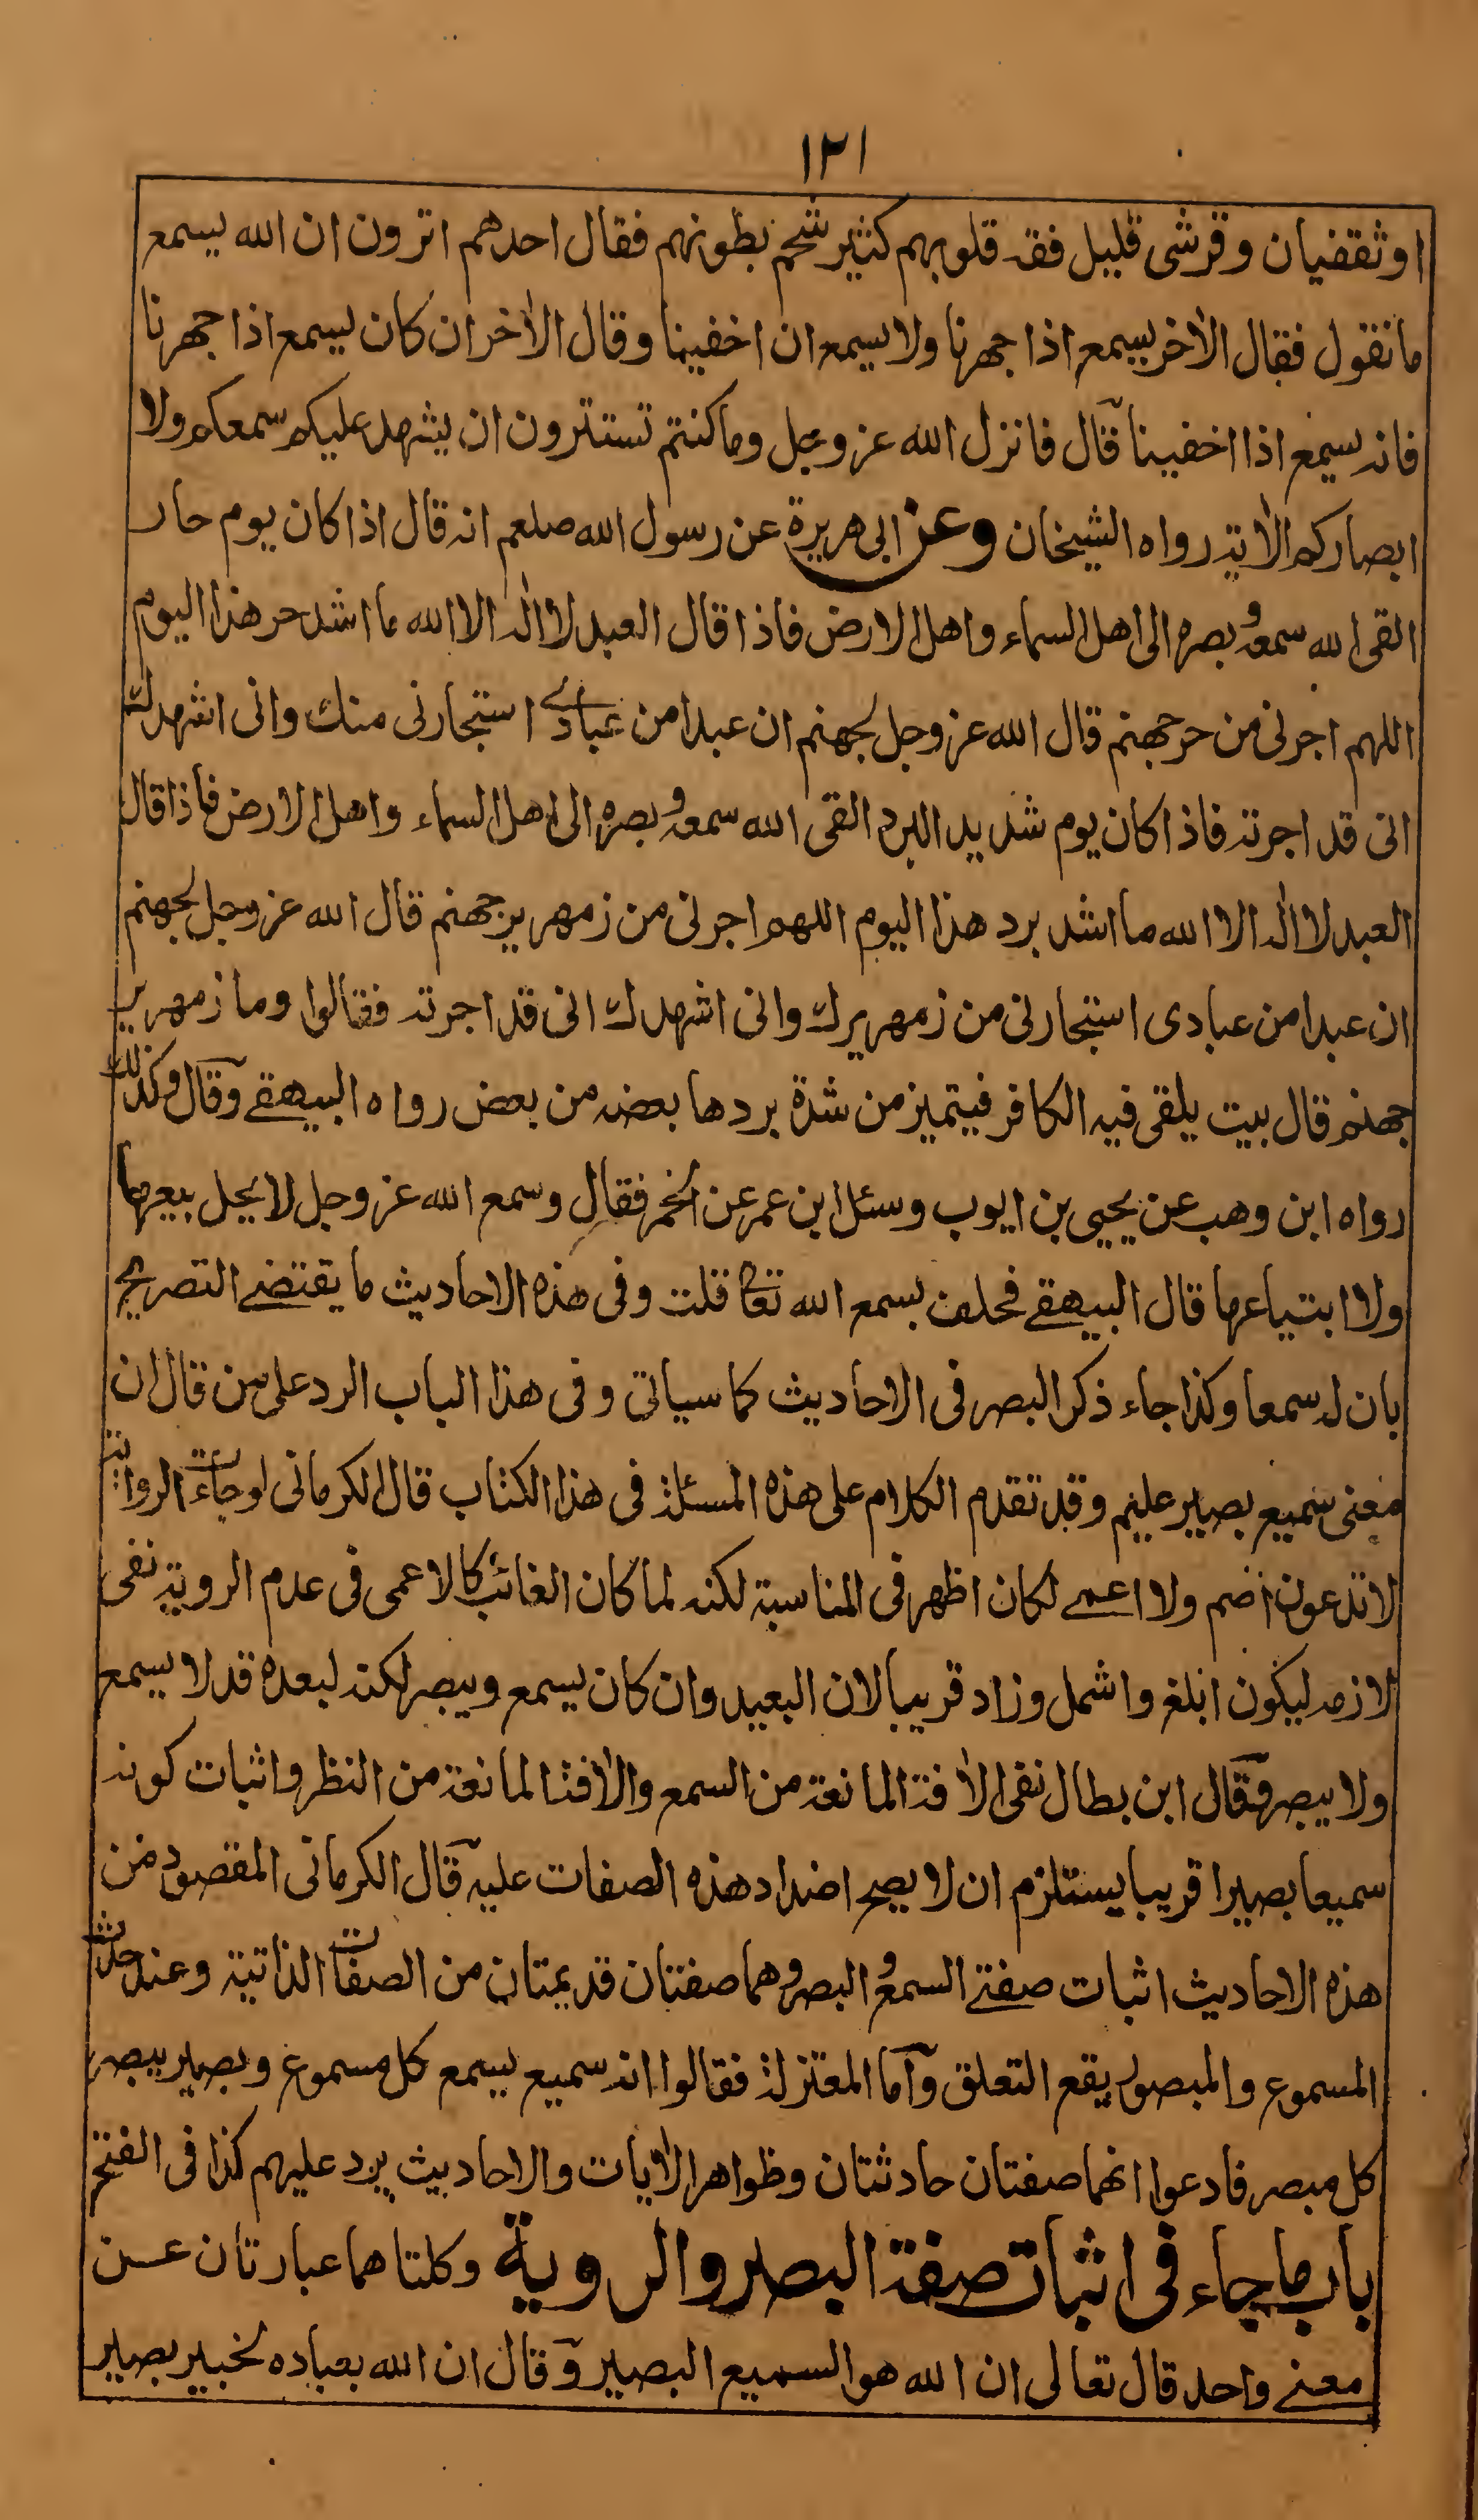 ١٢١
او ثقفيان وقرشى قليل فقه قلوبهم كثير شحم بطونهم فقال احدهم اترون ان الله يسمع
ما نقول فقال الآخر يسمع اذا جهرنا ولا يسمع ان اخفينا وقال الآخر ان كان يسمع اذا جهرنا
فانه يسمع اذا اخفينا قال فانزل الله عز وجل وما كنتم تستترون ان يشهد عليكم سمعكم ولا
ابصاركم الآية رواه الشيخان وعن ابى هريرة عن رسول الله صلعم انه قال اذا كان يوم حار
القى الله سمعه وبصره الى اهل السماء واهل الارض فاذا قال العبد لا اله الا الله ما اشد حر هذا اليوم
اللهم اجرنى من حر جهنم قال الله عز وجل لجهنم ان عبدا من عبادے استجارنى منك وانى اشهدك
انى قد اجرته فاذا كان يوم شديد البرد القى الله سمعه وبصره الى اهل السماء واهل الارض فاذا قال
العبد لا اله الا الله ما اشد برد هذا اليوم اللهم اجرنى من زمهرير جهنم قال الله عز وجل لجهنم
ان عبدا من عبادى استجارنى من زمهريرك وانى اشهدك انى قد اجرته فقالوا وما زمهرير
جهنم قال بيت يلقى فيه الكافر فيتميز من شدة بردها بعضه من بعض رواه البيهقے وقال وكذلك
رواه ابن وهب عن يحيى بن ايوب وسئل ابن عمر عن الخمر فقال وسمع الله عز وجل لا يحل بيعها
ولا ابتياعها قال البيهقے فحلف بسمع الله تعا قلت وفى هذه الاحاديث ما يقتضے التصريح
بان له سمعا وكذا جاء ذكر البصر فى الاحاديث كما سياتى وفى هذا الباب الرد على من قال ان
معنى سميع بصير عليم وقد تقدم الكلام على هذه المسئلة فى هذا الكتاب قال الكرمانى لو جاءت الرواية
لا تدعون اصم ولا اعمے لكان اظهر فى المناسبة لكنه لما كان الغائب كالاعمى فى عدم الروية نفى
لازمه ليكون ابلغ واشمل وزاد قريبا لان البعيد وان كان يسمع ويبصر لكنه لبعده قد لا يسمع
ولا يبصر فقال ابن بطال نفى الآفة المانعة من السمع والآفة المانعة من النظر واثبات كونه
سميعا بصيرا قريبا يستلزم ان لا يصح اضداد هذه الصفات عليه قال الكرمانى المقصود من
هذه الاحاديث اثبات صفتے السمع والبصر وهما صفتان قديمتان من الصفات الذاتية وعند حدوث
المسموع والمبصر يقع التعلق وآما المعتزلة فقالوا انه سميع يسمع كل مسموع وبصير يبصر
كل مبصر فادعوا انهما صفتان حادثتان وظواهر الآيات والاحاديث يرد عليهم كذا فى الفتح
باب ما جاء فى اثبات صفة البصر والروية وكلتاهما عبارتان عن
معنے واحد قال تعالى ان الله هو السميع البصير وقال ان الله بعباده لخبير بصير